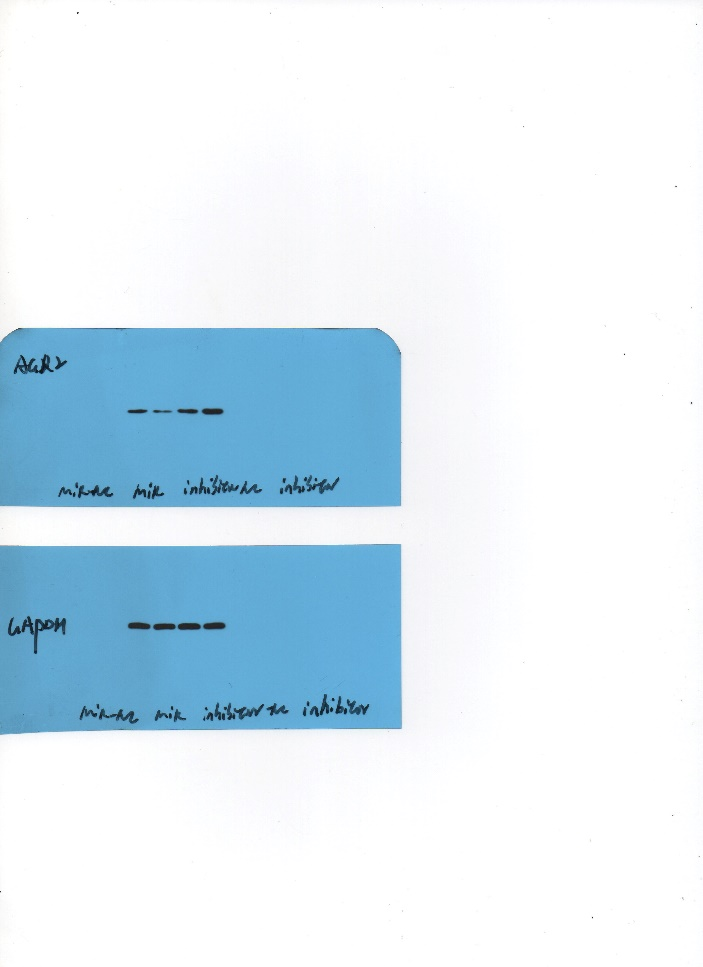 AGR2
miR-NC miR inhibitor NC inhibitor
GAPDH
miR-NC miR inhibitor-NC inhibitor